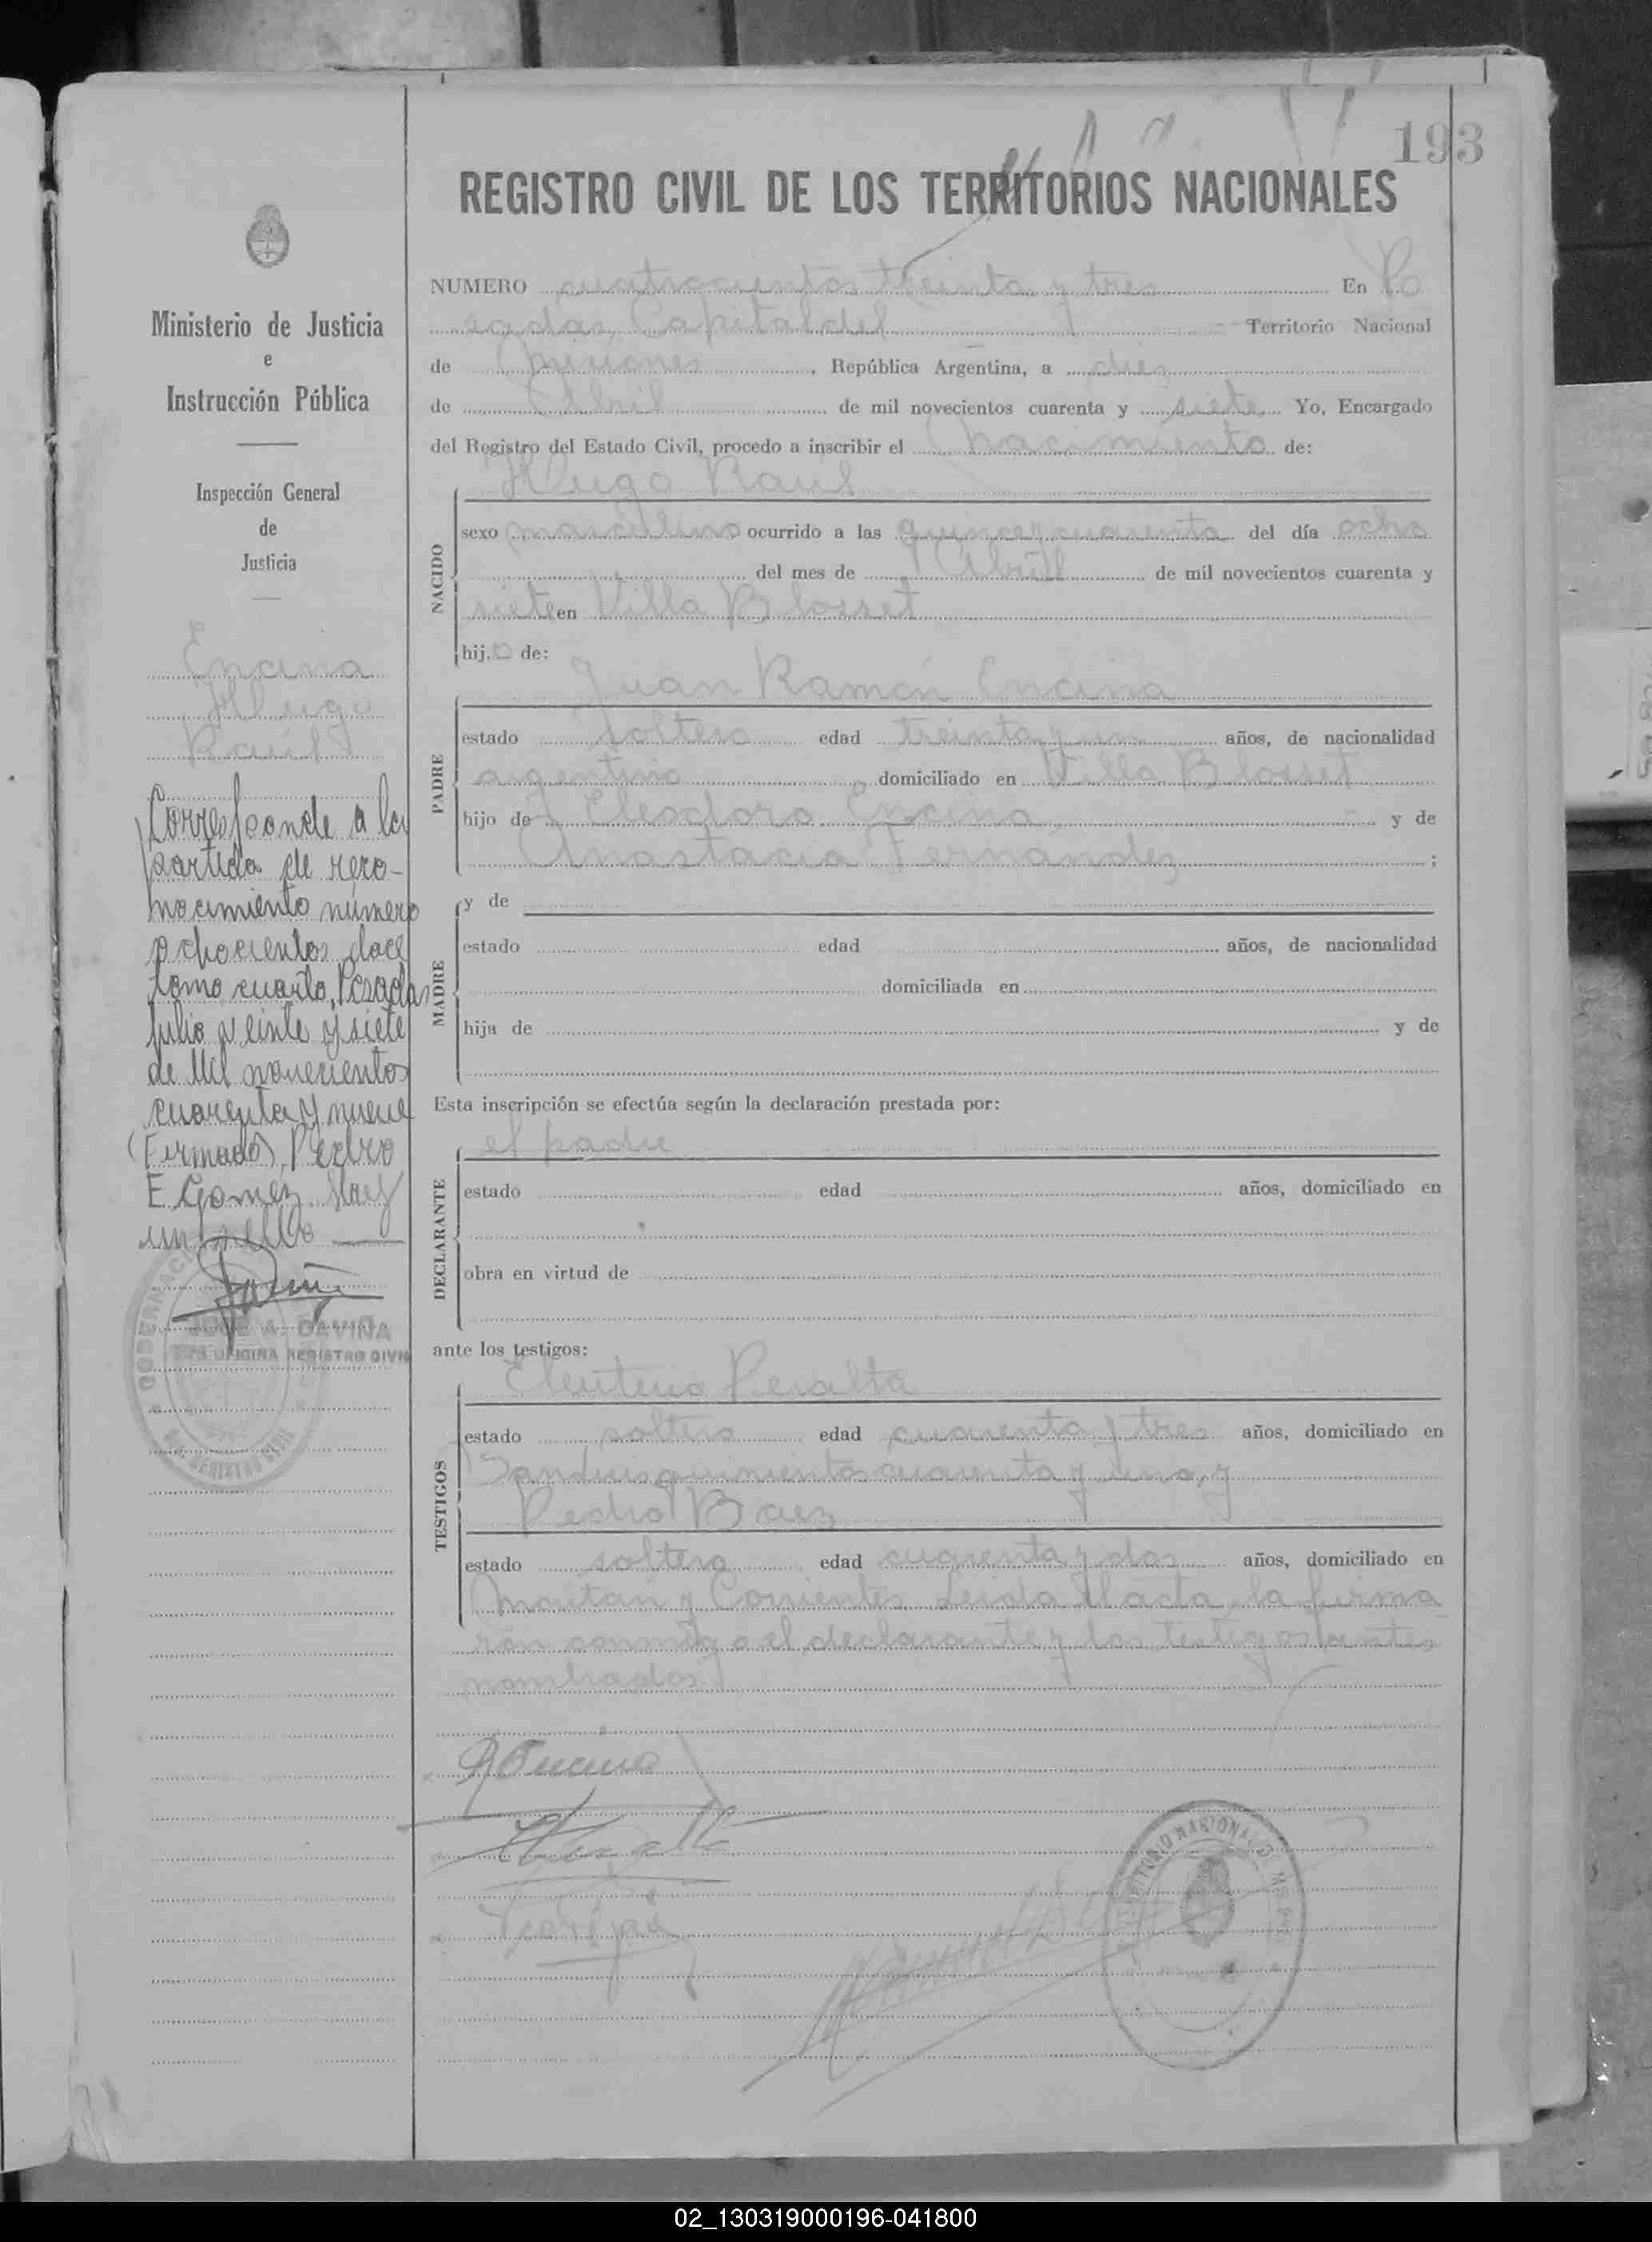 193
REGISTRO CIVIL DE LOS TERRITORIOS NACIONALES
Ministerio de Justicia
e
Instrucción Pública
Inspección General
de
Justicia
Encina
Hugo
Raúl
Corresponde a la
partida de reco-
nocimiento número
ochocientos doce
tomo cuarto, Posadas
julio veinte y siete
de mil novecientos
cuarenta y nueve
(Firmado) Pedro
E. Gomez. Hay
un sello
JOSE A. DAVIÑA
OFICINA REGISTRO CIVIL
NUMERO cuatrocientos treinta y tres En Po
sadas, Capital del Territorio Nacional
de Misiones, República Argentina, a diez
de Abril de mil novecientos cuarenta y siete Yo, Encargado
del Registro del Estado Civil, procedo a inscribir el nacimiento de:
Hugo Raúl
NACIDO
sexo masculino ocurrido a las quince y cuarenta del día ocho
del mes de Abril de mil novecientos cuarenta y
siete en Villa Blosset
hijo de:
Juan Ramón Encina
PADRE
estado soltero edad treinta y un años, de nacionalidad
argentino domiciliado en Villa Blosset
hijo de Eleodoro Encina y de
Anastacia Fernandez ;
MADRE
y de
estado edad años, de nacionalidad
domiciliada en
hija de y de
Esta inscripción se efectúa según la declaración prestada por:
el padre
DECLARANTE
estado edad años, domiciliado en
obra en virtud de
ante los testigos:
Eleuterio Peralta
TESTIGOS
estado soltero edad cuarenta y tres años, domiciliado en
San Luis quinientos cuarenta y uno, y
Pedro Baez
estado soltero edad cuarenta y dos años, domiciliado en
y Corrientes. Leida el acta, la firma
ron conmigo el declarante y los testigos antes
nombrados.
TERRITORIO NACIONAL DE MISIONES
02_130319000196-041800